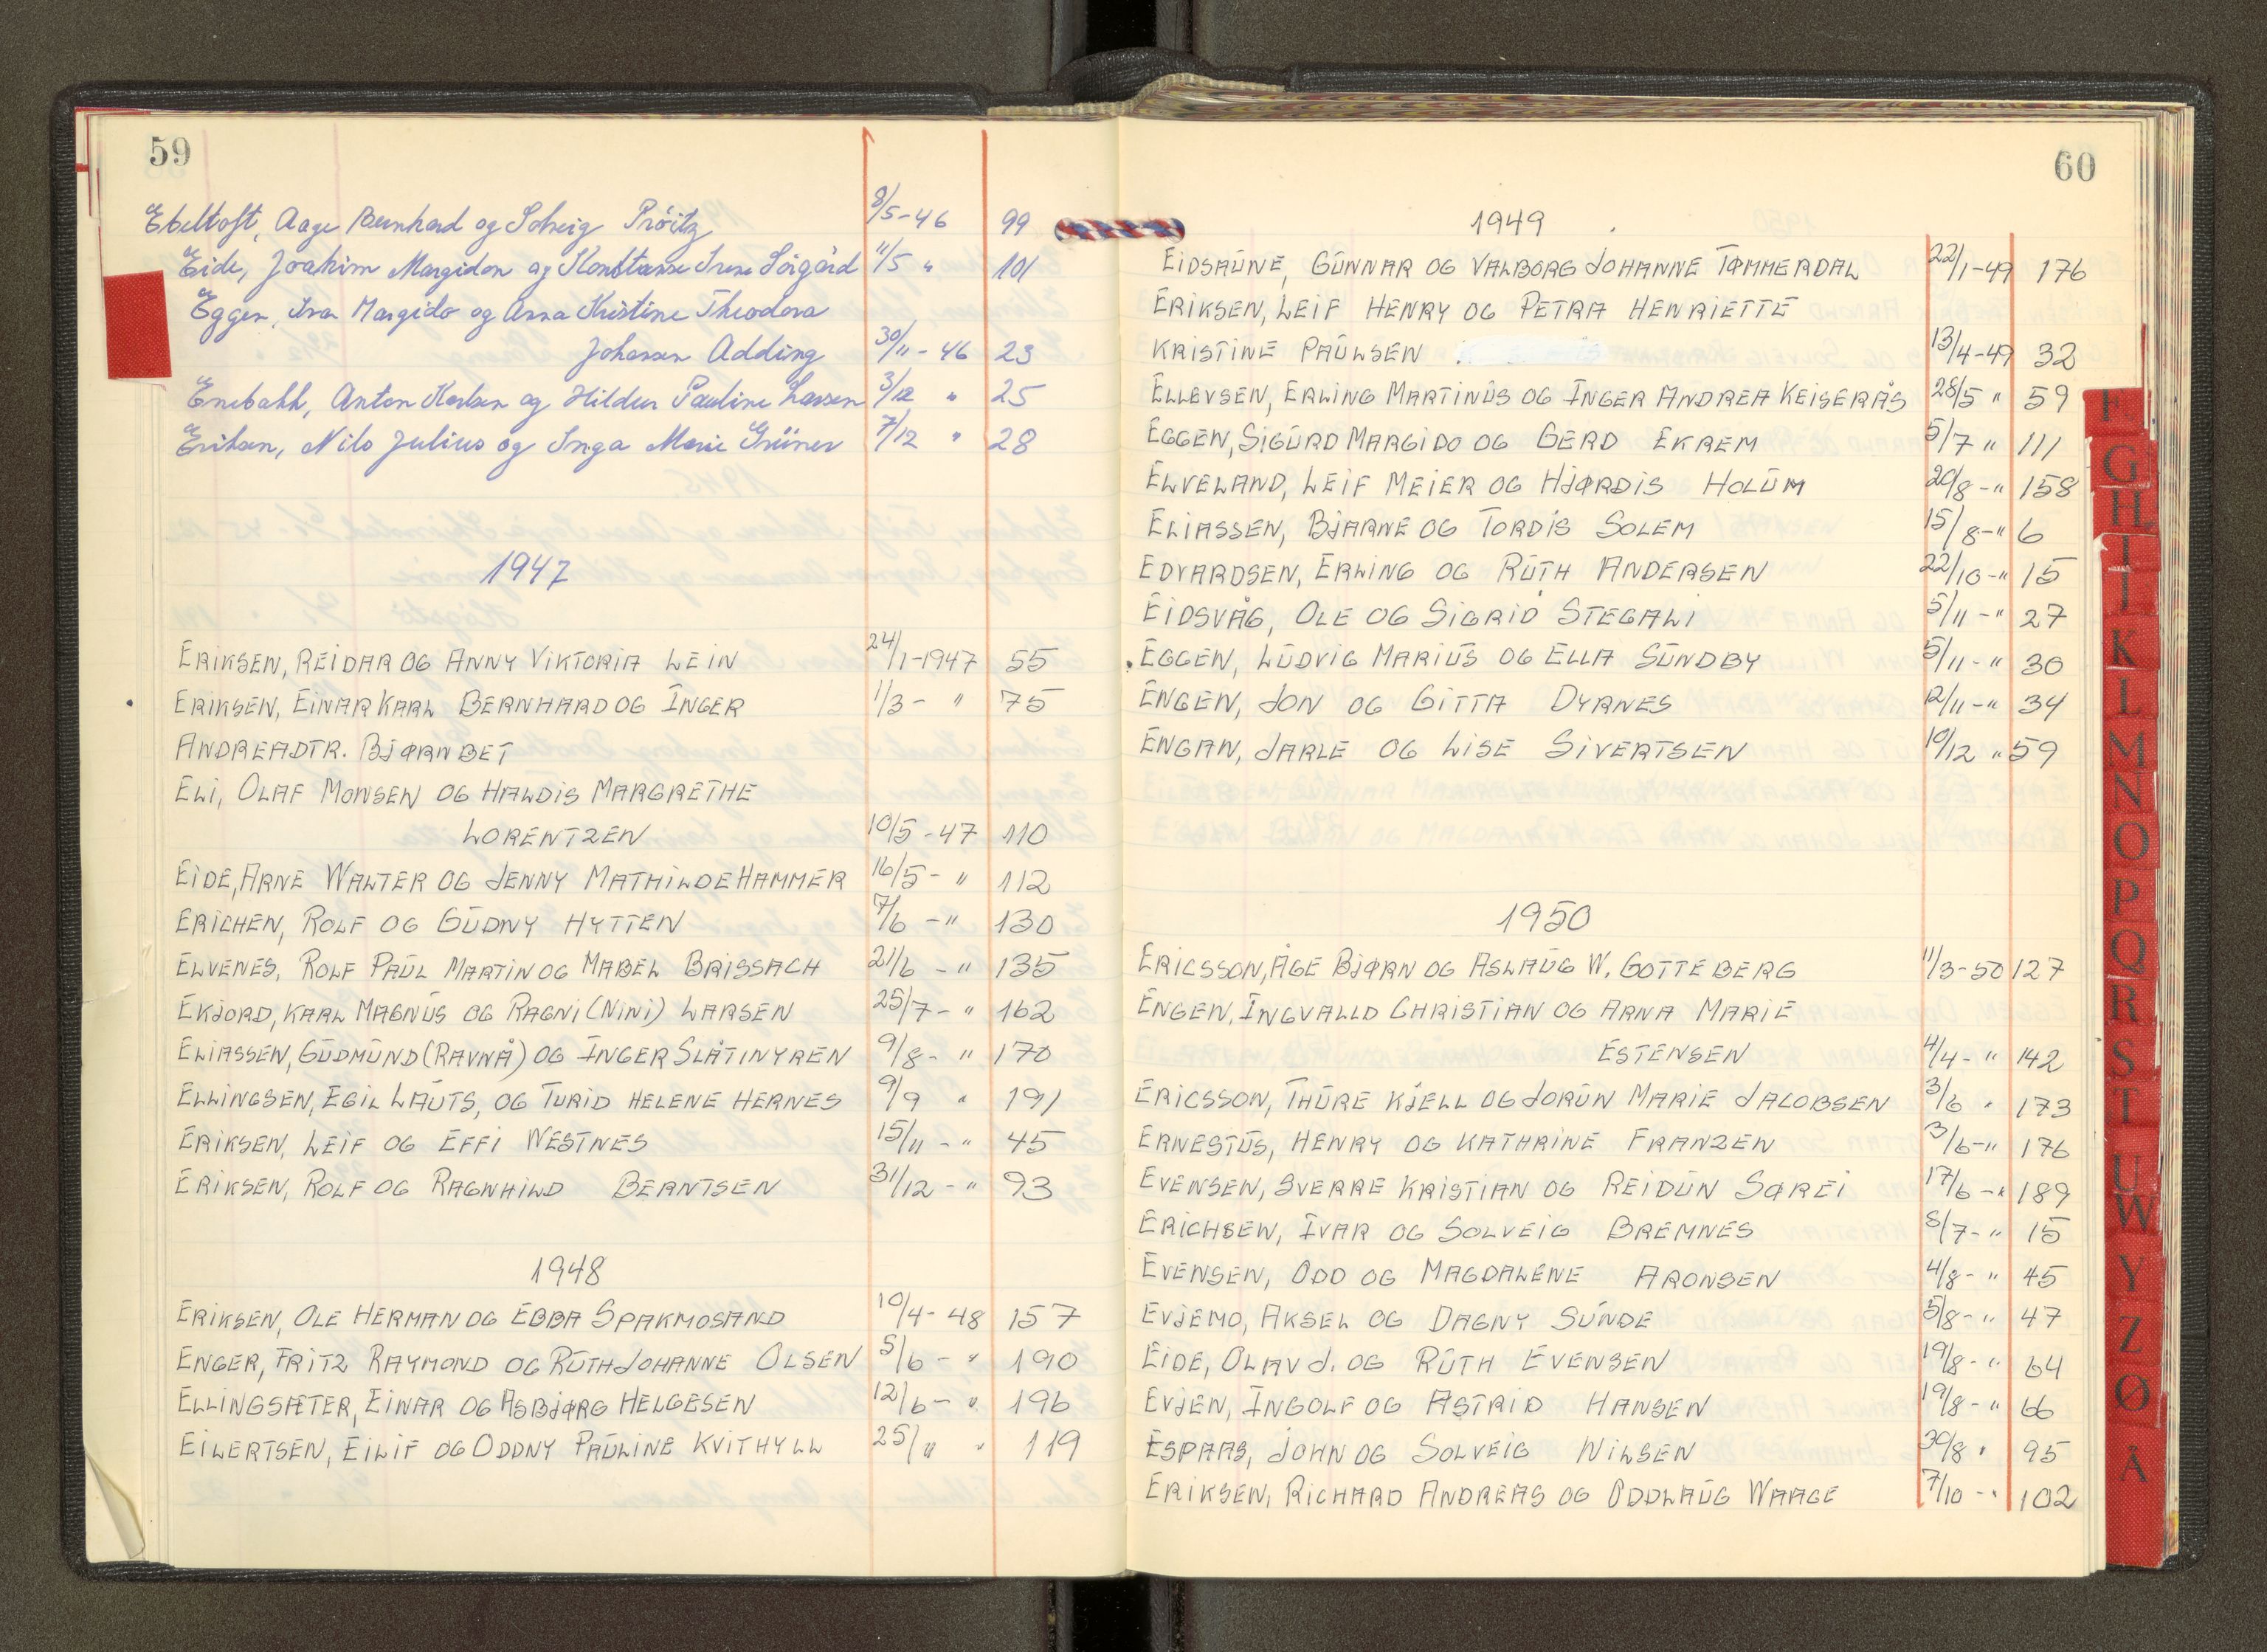 59
Ebeltoft, Aage Bernhard og Solveig Pröitz 8/5-46 99
Eide, Joakim Margidon og Konstanse Irene Sörgård 11/5 " 101
Eggen, Ivar Margido og Anna Kristine Theodora
Johansen Adding 30/11-46 23
Enebakk, Anton Karlsen og Hildur Pauline Larsen 3/12 " 25
Eriksen, Nils Julius og Inga Marie Grüner 7/12 " 28
1947
ERIKSEN, REIDAR OG ANNY VIKTORIA LEIN 24/1-1947 55
ERIKSEN, EINAR KARL BERNHARD OG INGER 1/3- " 75
ANDREADTR. BJØRNBET
ELI, OLAF MONSEN OG HALDIS MARGRETHE
LORENTZEN 10/5-47 110
EIDE, ARNE WALTER OG JENNY MATHILDE HAMMER 16/5- " 112
ERICHEN, ROLF OG GUDNY HYTTEN 7/6 -" 130
ELVENES, ROLF PAUL MARTIN OG MABEL BRISSACH 21/6 -" 135
EKJORD, KARL MAGNUS OG RAGNI (NINI) LARSEN 25/7- " 162
ELIASSEN, GUDMUND (RAVNÅ) OG INGER SLÅTINYREN 9/8- " 170
ELLINGSEN, EGIL LAUTS, OG TURID HELENE HERNES 9/9 " 191
ERIKSEN, LEIF OG EFFI WESTNES 15/11 -" 45
ERIKSEN, ROLF OG RAGNHILD BERNTSEN 31/12 -" 93
1948
ERIKSEN, OLE HERMAN OG EBBA SPAKMOSAND 10/4-48 157
ENGER, FRITZ RAYMOND OG RUTH JOHANNE OLSEN 5/6 - " 190
ELLINGSÆTER, EINAR OG ASBJØRG HELGESEN 12/6 - " 196
EILERTSEN, EILIF OG ODDNY PAULINE KVITHYLL 25/11 " 119
60
1949
EIDSAUNE, GUNNAR OG VALBORG JOHANNE TØMMERDAL 22/1-49 176
ERIKSEN, LEIF HENRY OG PETRA HENRIETTE
KRISTINE PAULSEN 13/4-49 32
ELLEVSEN, ERLING MARTINUS OG INGER ANDREA KEISERÅS 28/5 " 59
EGGEN, SIGURD MARGIDO OG GERD EKREM 5/7 " 111
ELVELAND, LEIF MEIER OG HJØRDIS HOLUM 20/8 -" 158
ELIASSEN, BJARNE OG TORDIS SOLEM 15/8-" 6
EDVARDSEN, ERLING OG RUTH ANDERSEN 22/10-" 15
EIDSVÅG, OLE OG SIGRID STEGALI 5/11 -" 27
EGGEN, LUDVIG MARIUS OG ELLA SUNDBY 5/11 -" 30
ENGEN, JON OG GITTA DYRNES 12/11 -" 34
ENGAN, JARLE OG LISE SIVERTSEN 10/12 " 59
1950
ERICSSON, ÅGE BJØRN OG ASLAUG W. GOTTEBERG 11/3-50 127
ENGEN, INGVALLD CHRISTIAN OG ARNA MARIE
ESTENSEN 4/4- " 142
ERICSSON, THURE KJELL OG JORUN MARIE JACOBSEN 3/6 " 173
ERNESTUS, HENRY OG KATHRINE FRANZEN 3/6-" 176
EVENSEN, SVERRE KRISTIAN OG REIDUN SØREI 17/6 -" 189
ERICHSEN, IVAR OG SOLVEIG BREMNES 8/7- " 15
EVENSEN, ODD OG MAGDALENE ARONSEN 4/8- " 45
EVJEMO, AKSEL OG DAGNY SUNDE 5/8- " 47
EIDE, OLAV J. OG RUTH EVENSEN 19/8- " 64
EVJEN, INGOLF OG ASTRID HANSEN 19/8- " 66
ESPAAS, JOHN OG SOLVEIG NILSEN 30/8 " 95
ERIKSEN, RICHARD ANDREAS OG ODDLAUG WAAGE 7/10 -" 102
F
G
H
I
J
K
L
M
N
O
P
Q
R
S
T
U
W
Y
Z
Ø
Å